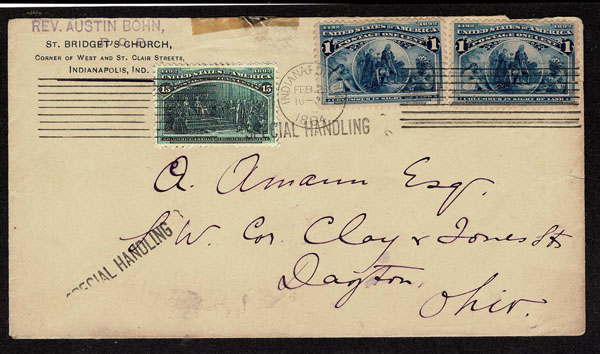 REV. AUSTIN BOHN,
ST. BRIDGET'S CHURCH,
CORNER OF WEST AND ST. CLAIR STREETS,
INDIANAPOLIS, IND.
1492 1892
UNITED STATES OF AMERICA
15 15
1492 1892
UNITED STATES OF AMERICA
POSTAGE ONE CENT
1 1
COLUMBUS IN SIGHT OF LAND
1492 1892
UNITED STATES OF AMERICA
POSTAGE ONE CENT
1 1
COLUMBUS IN SIGHT OF LAND
FEB
SPECIAL HANDLING
A. Amann Esq.
S. W. Cor. Clay & Jones Sts
Dayton,
Ohio.
SPECIAL HANDLING